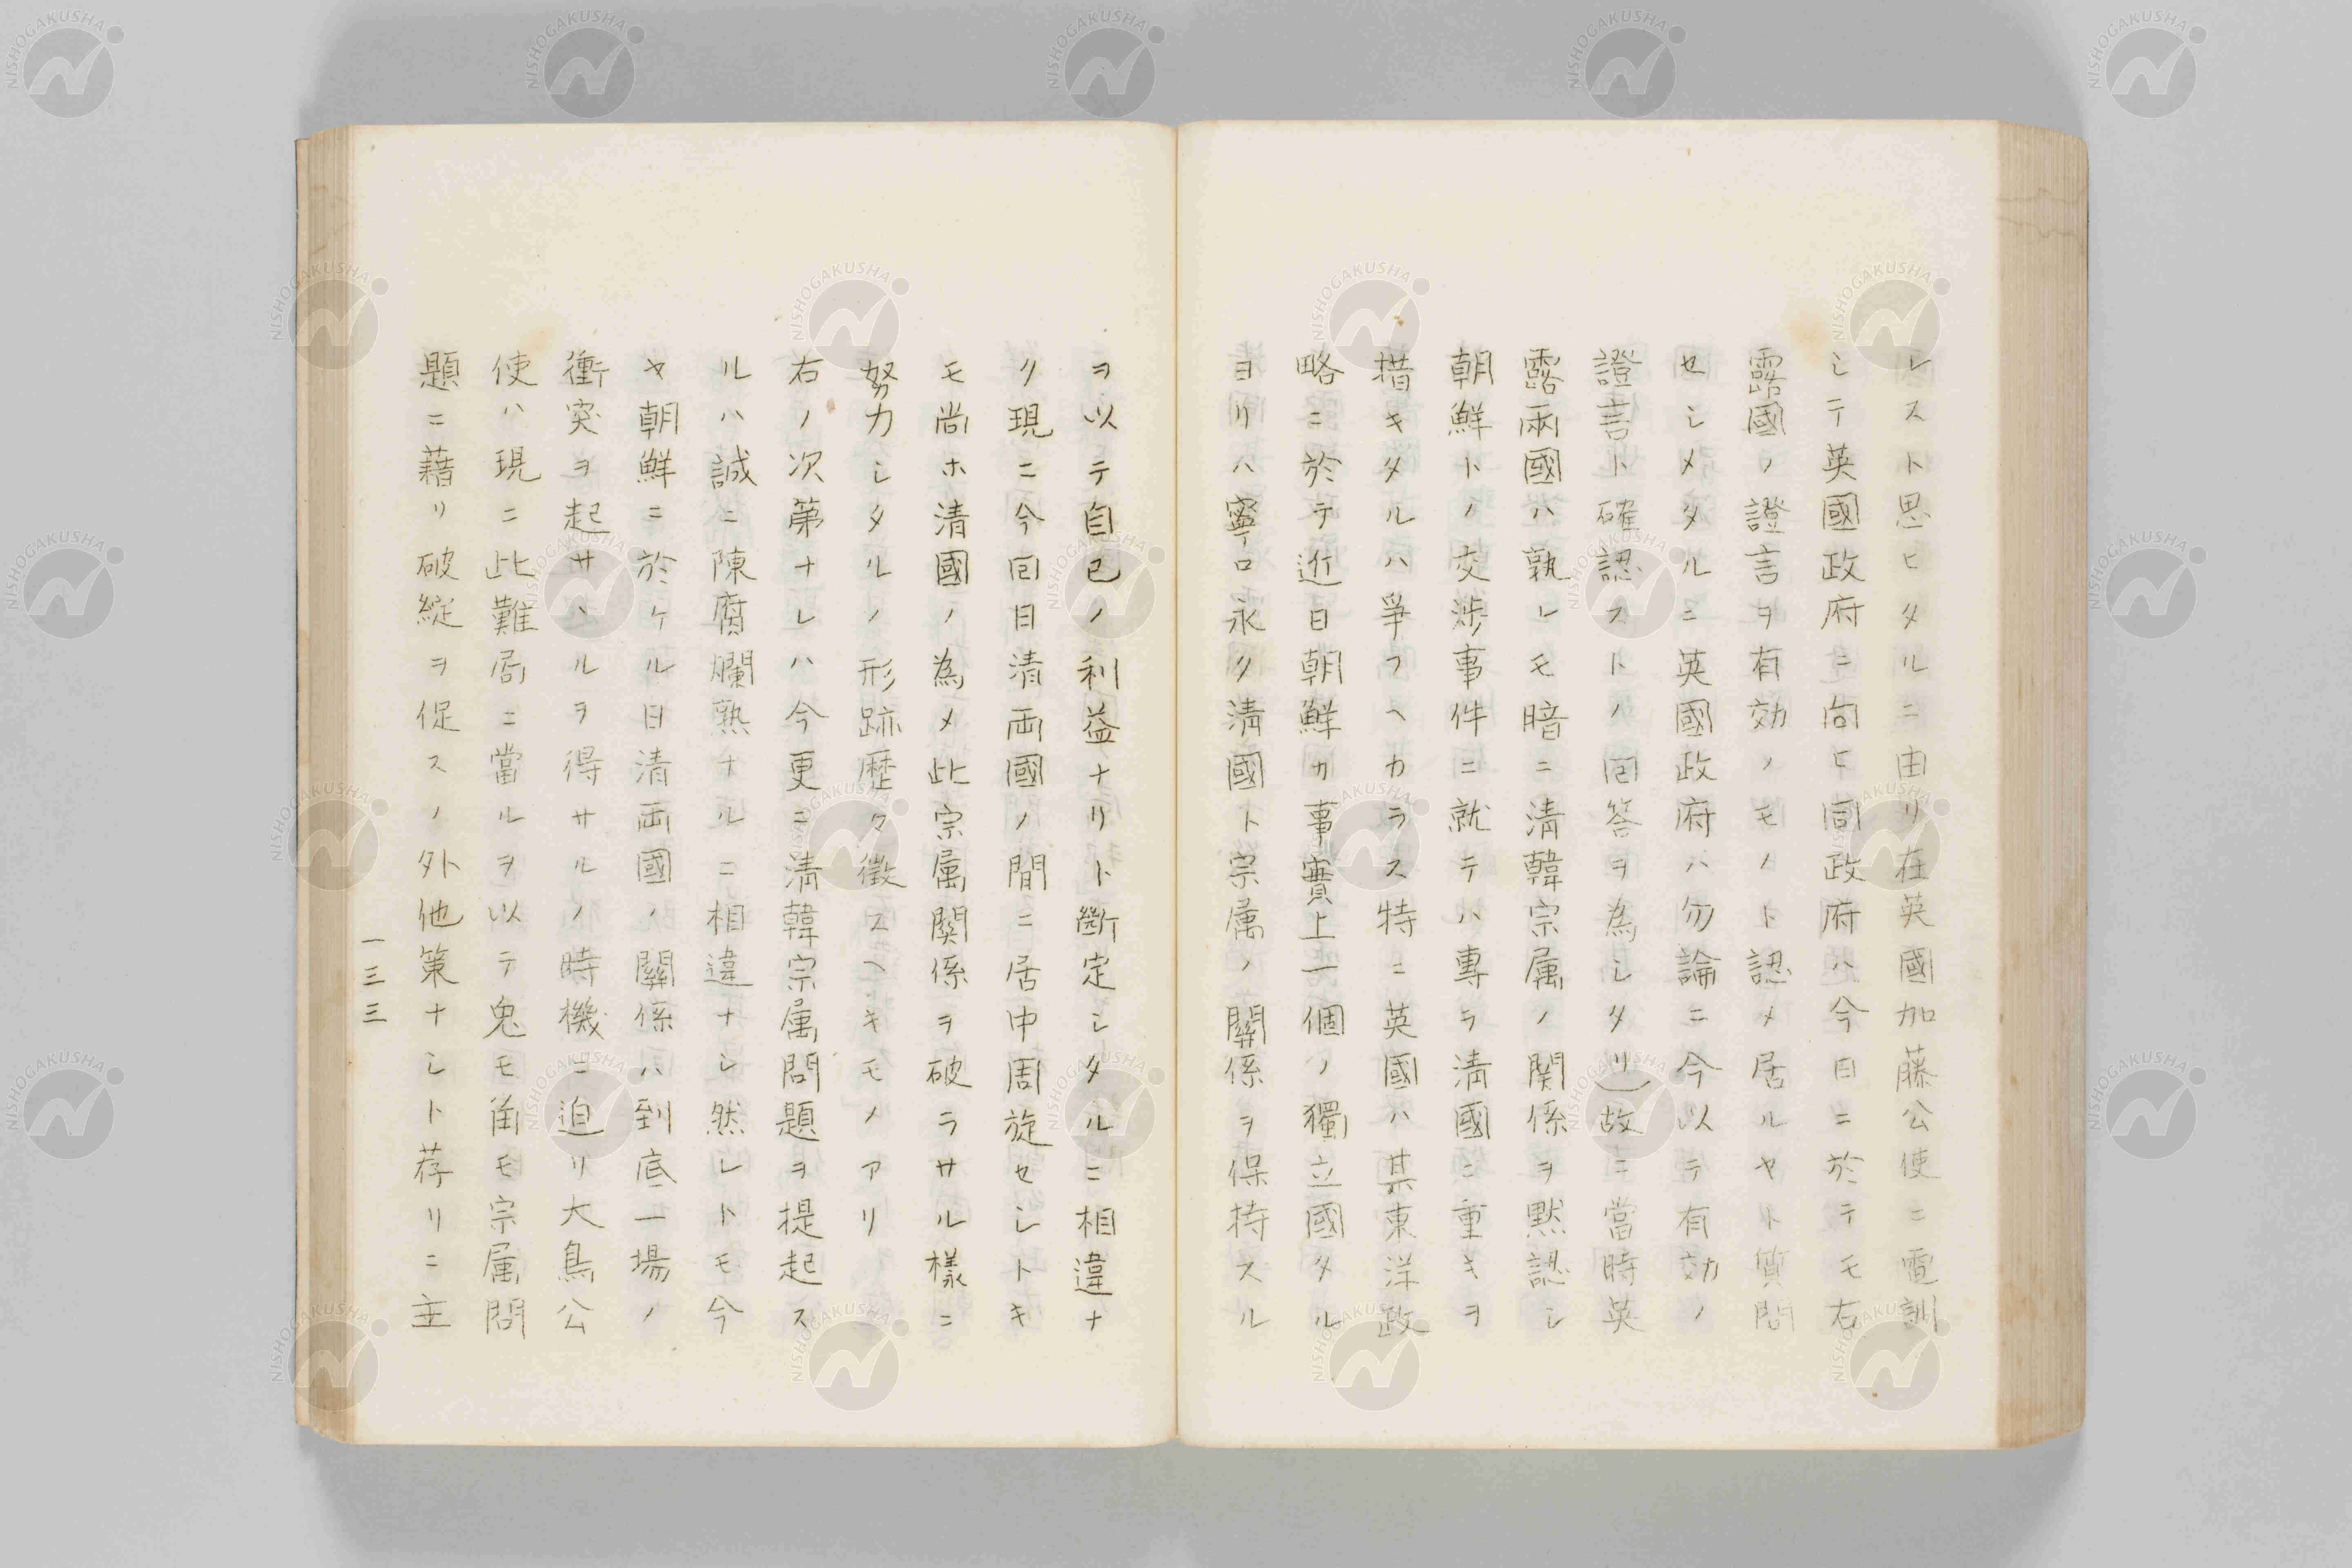 レスト思ヒタルニ由リ在英國加藤公使ニ電訓
シテ英國政府ニ向ヒ同政府ハ今日ニ於テモ右
露國ノ證言ヲ有効ノモノト認メ居ルヤト質問
セシメタルニ英國政府ハ勿論ニ今以テ有効ノ
證言ト確認ストノ回答ヲ為シタリ)故ニ當時英
露兩國ハ孰レモ暗ニ清韓宗属ノ関係ヲ黙認シ
朝鮮トノ交渉事件ニ就テハ專ラ清國ニ重キヲ
措キタルハ爭フヘカラス特ニ英國ハ其東洋政
略ニ於テ近日朝鮮カ事實上一個ノ獨立國タル
ヨリハ寧ロ永ク清國ト宗属ノ關係ヲ保持スル
ヲ以テ自己ノ利益ナリト斷定シタルニ相違ナ
ク現ニ今回日清両國ノ間ニ居中周旋セシトキ
モ尚ホ清國ノ為メ此宗属関係ヲ破ラサル樣ニ
努力シタルノ形跡歴々徴スヘキモノアリ
右ノ次第ナレハ今更ニ清韓宗属問題ヲ提起ス
ルハ誠ニ陳腐爛熟ナルニ相違ナシ然レトモ今
ヤ朝鮮ニ於ケル日清両國ノ關係ハ到底一場ノ
衝突ヲ起サヽルヲ得サルノ時機ニ迫リ大鳥公
使ハ現ニ此難局ニ當ルヲ以テ鬼モ角モ宗属問
題ニ藉リ破綻ヲ促スノ外他策ナシト荐リニ主
一三三
NISHOGAKUSHA